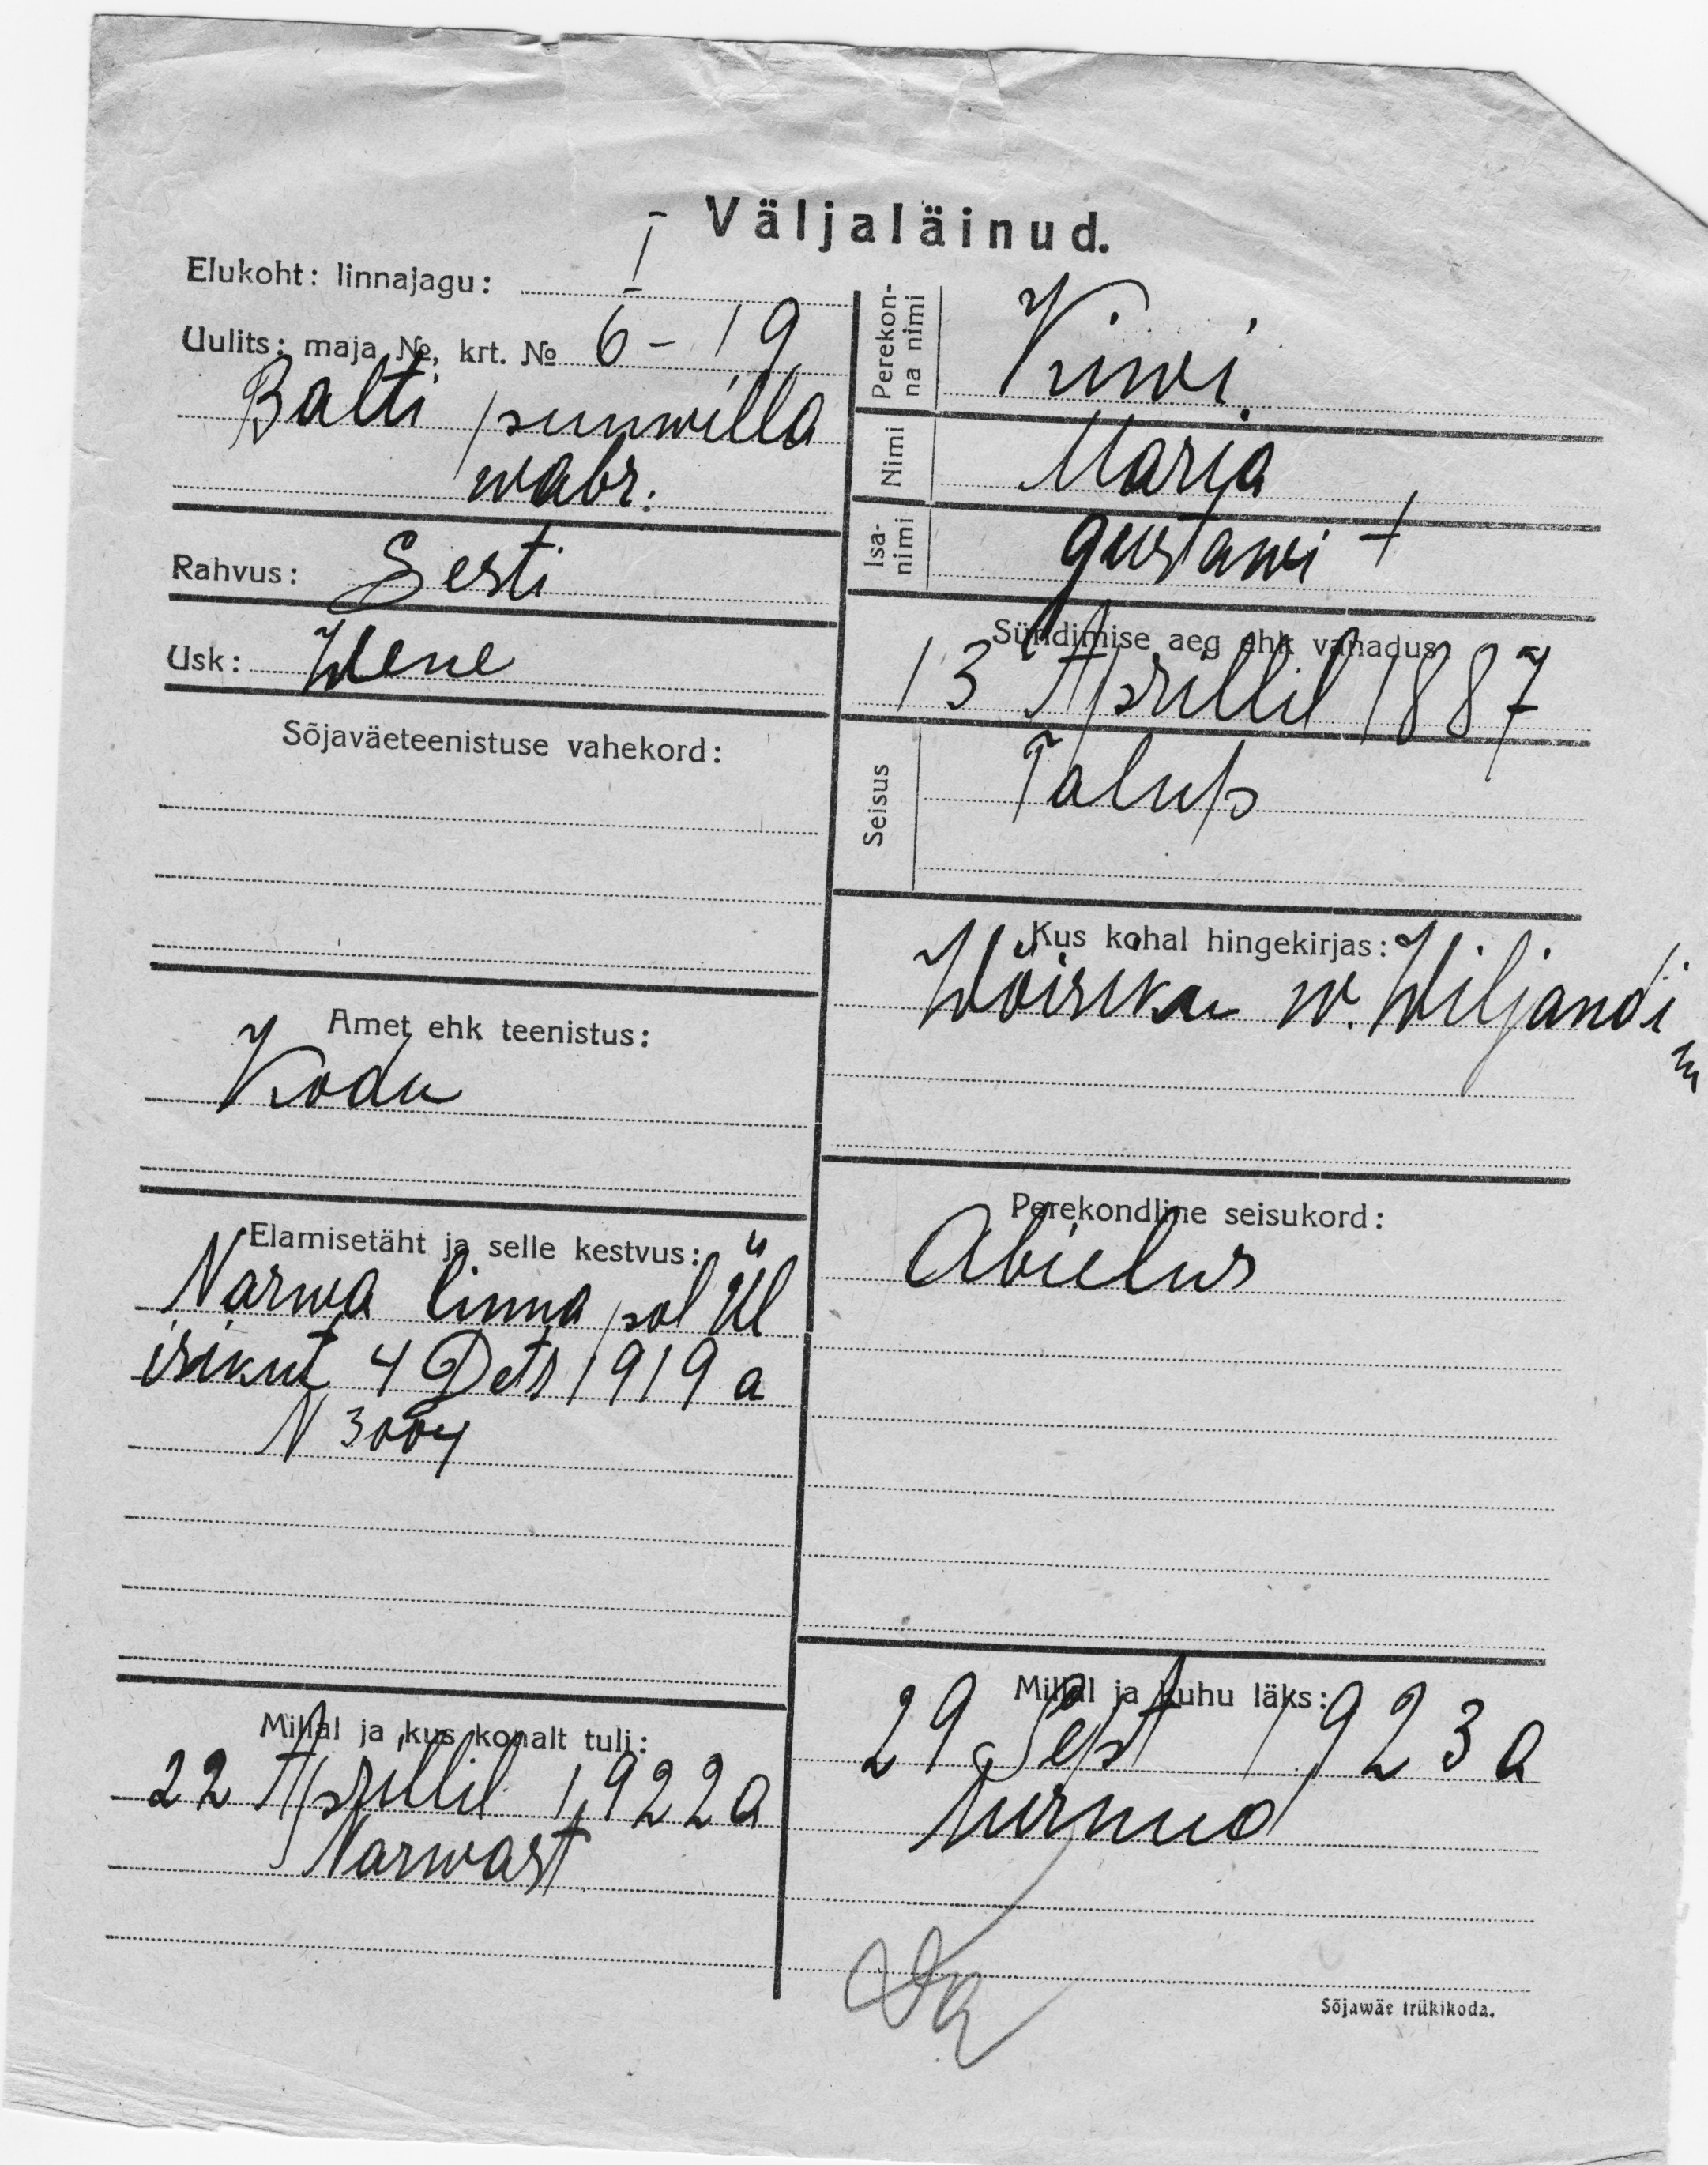 Väljaläinud.
Elukoht: linnajagu: I
Uulits: maja №, krt. № 6 - 19
Balti puuwilla
wabr.
Rahvus: Eesti
Usk: Wene
Sõjaväeteenistuse vahekord:
Amet ehk teenistus:
Kodu
Elamisetäht ja selle kestvus:
Narwa linna pol ül
isikut 4 Dets 1919 a
N 3004
Millal ja kus kohalt tuli:
22 Aprillil 1922 a
Narwast
Perekon-
na nimi
Kiiwi
Nimi Maria
Isa-
nimi
Gustawi +
Sündimise aeg ehk vanadus
13 Aprillil 1887
Seisus Talup
Kus kohal hingekirjas:
Wõisiku w. Wiljandi
m
Perekondline seisukord:
Abielus
Millal ja kuhu läks:
29 Sept 1923 a
Surnud
Sõjawäe trükikoda.